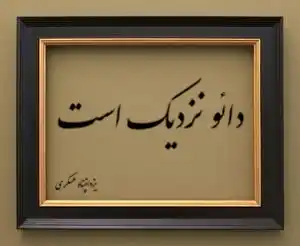 دائو نزدیک است
یزدانپناه عسکری